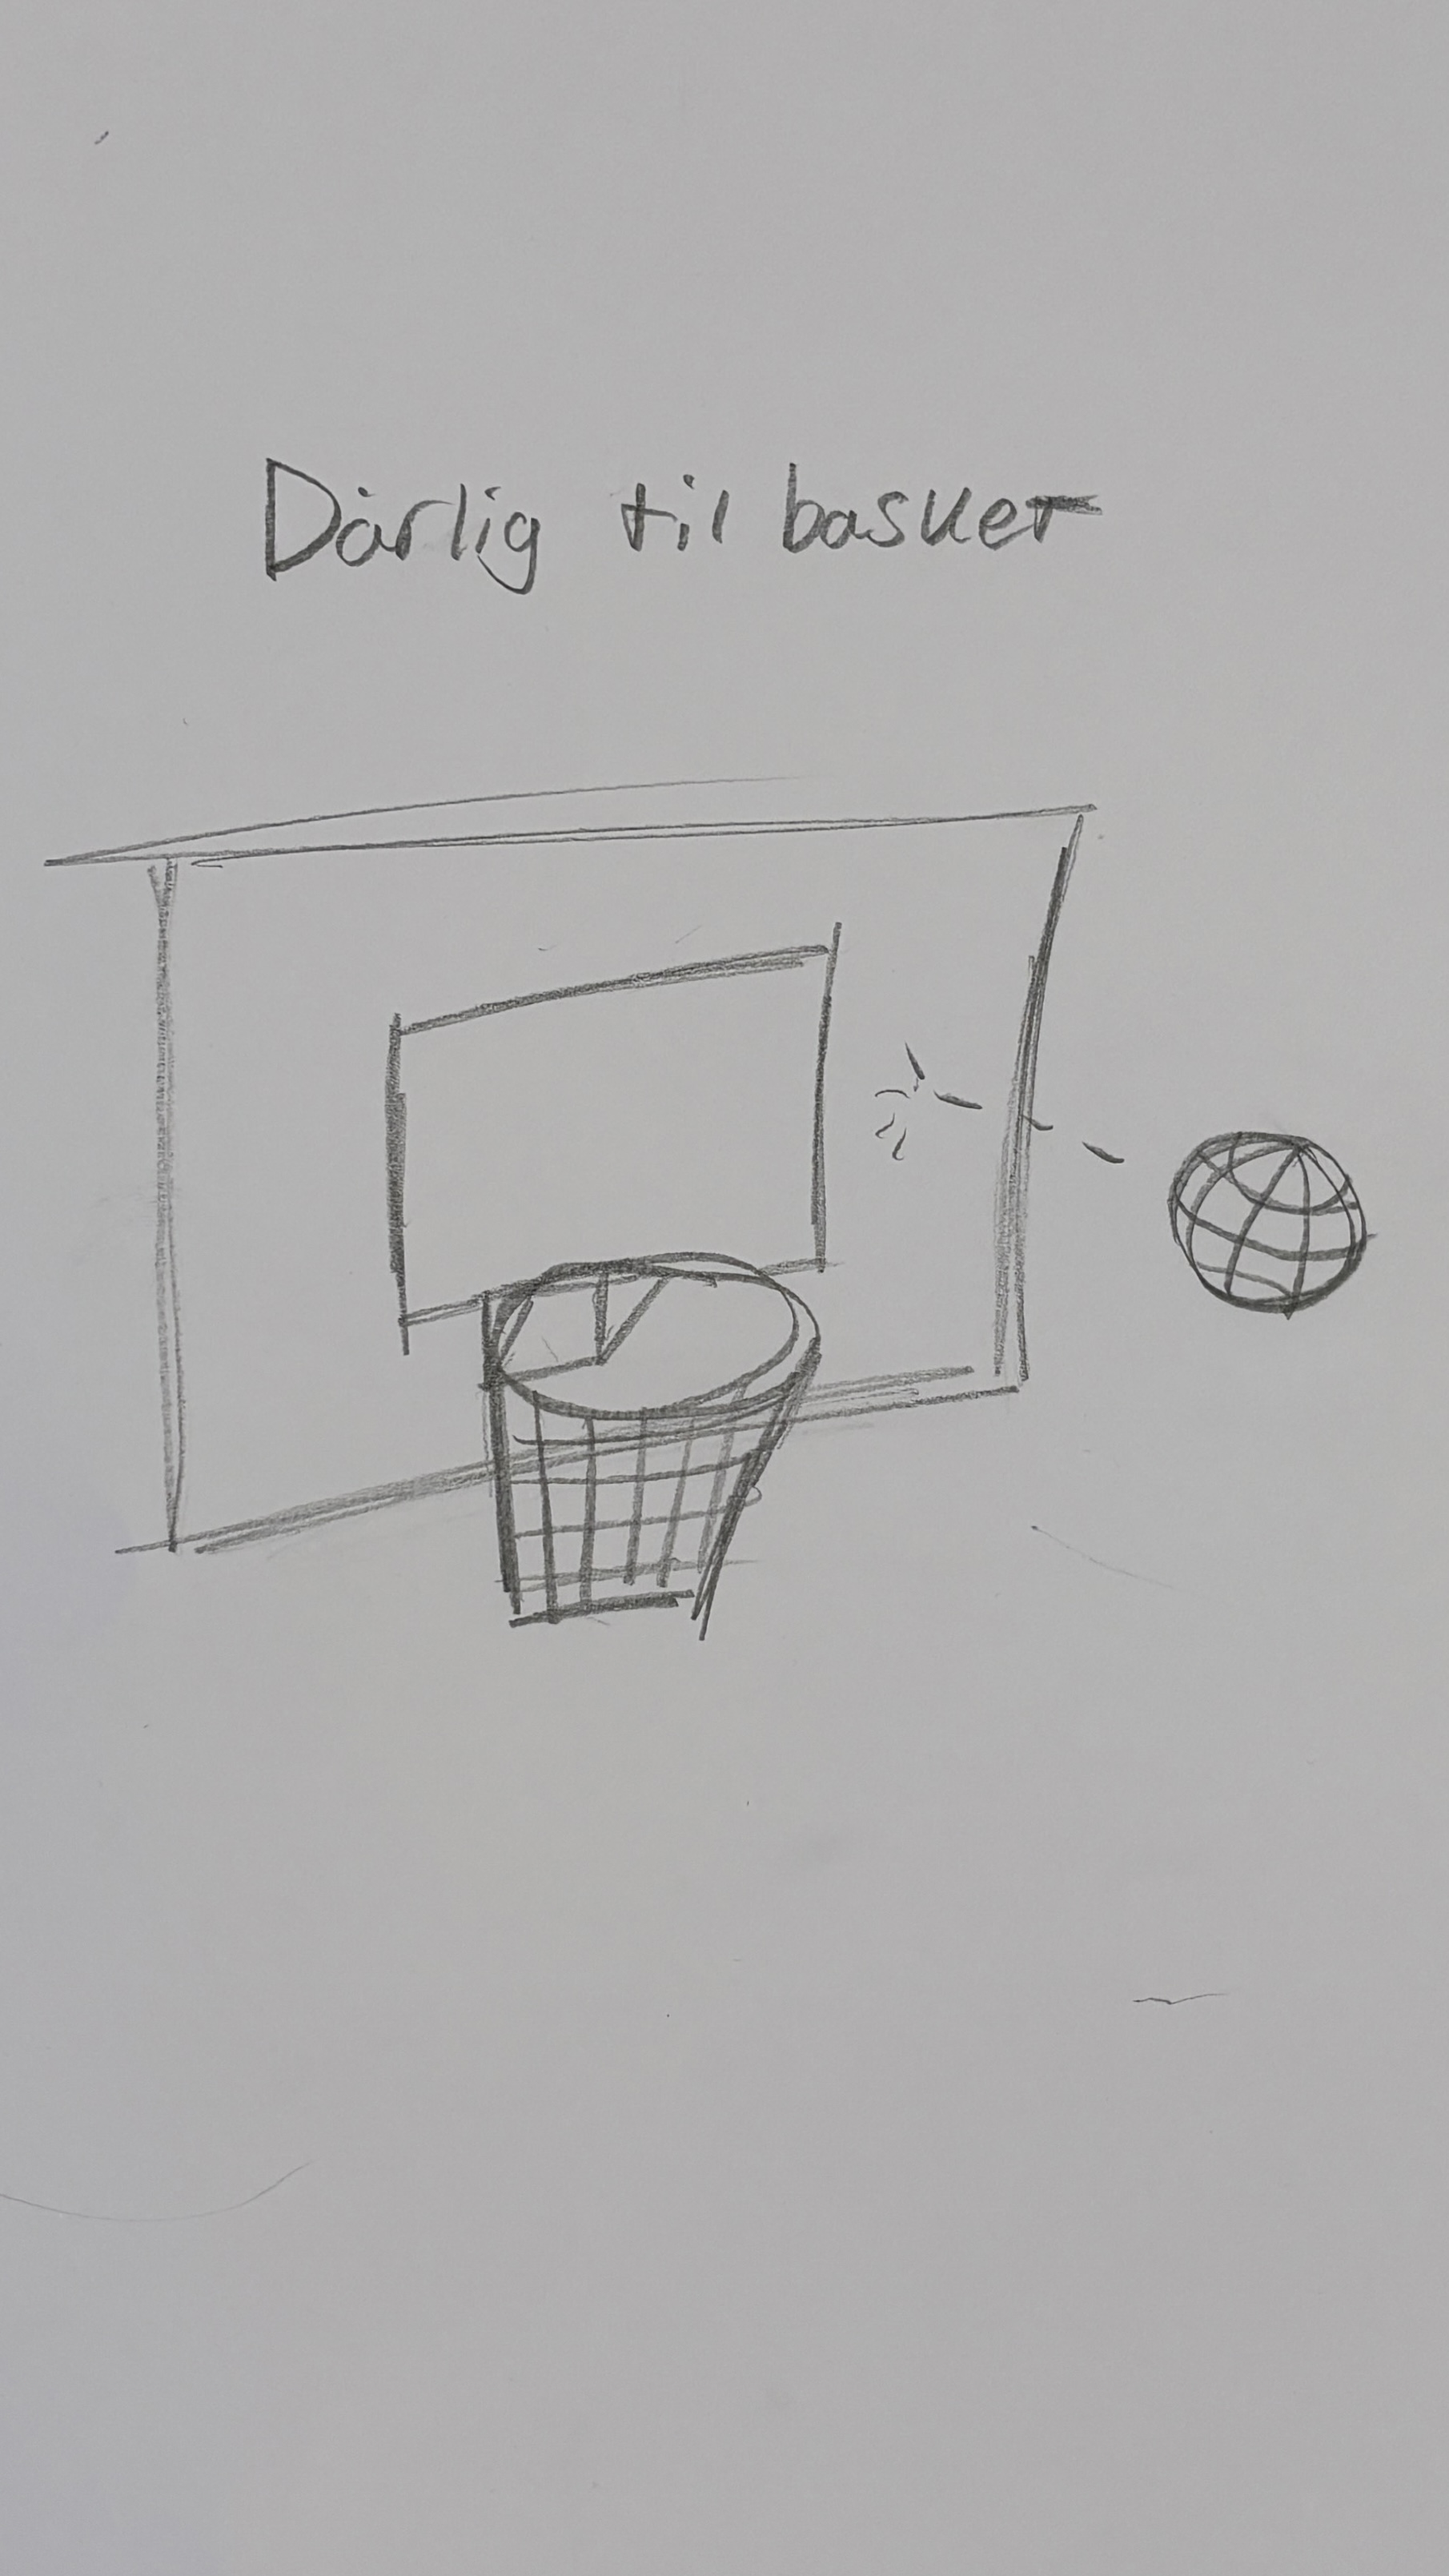 Dårlig til basket